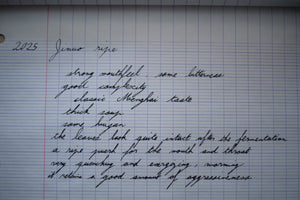 2025 Jinuo ripe
strong mouthfeel, some bitterness
good complexity
classic Menghai taste
thick soup
some huigan
the leaves look quite intact after the fermentation
a ripe puerh for the mouth and throat
very quenching and energizing, morning
it retain a good amount of aggressiveness